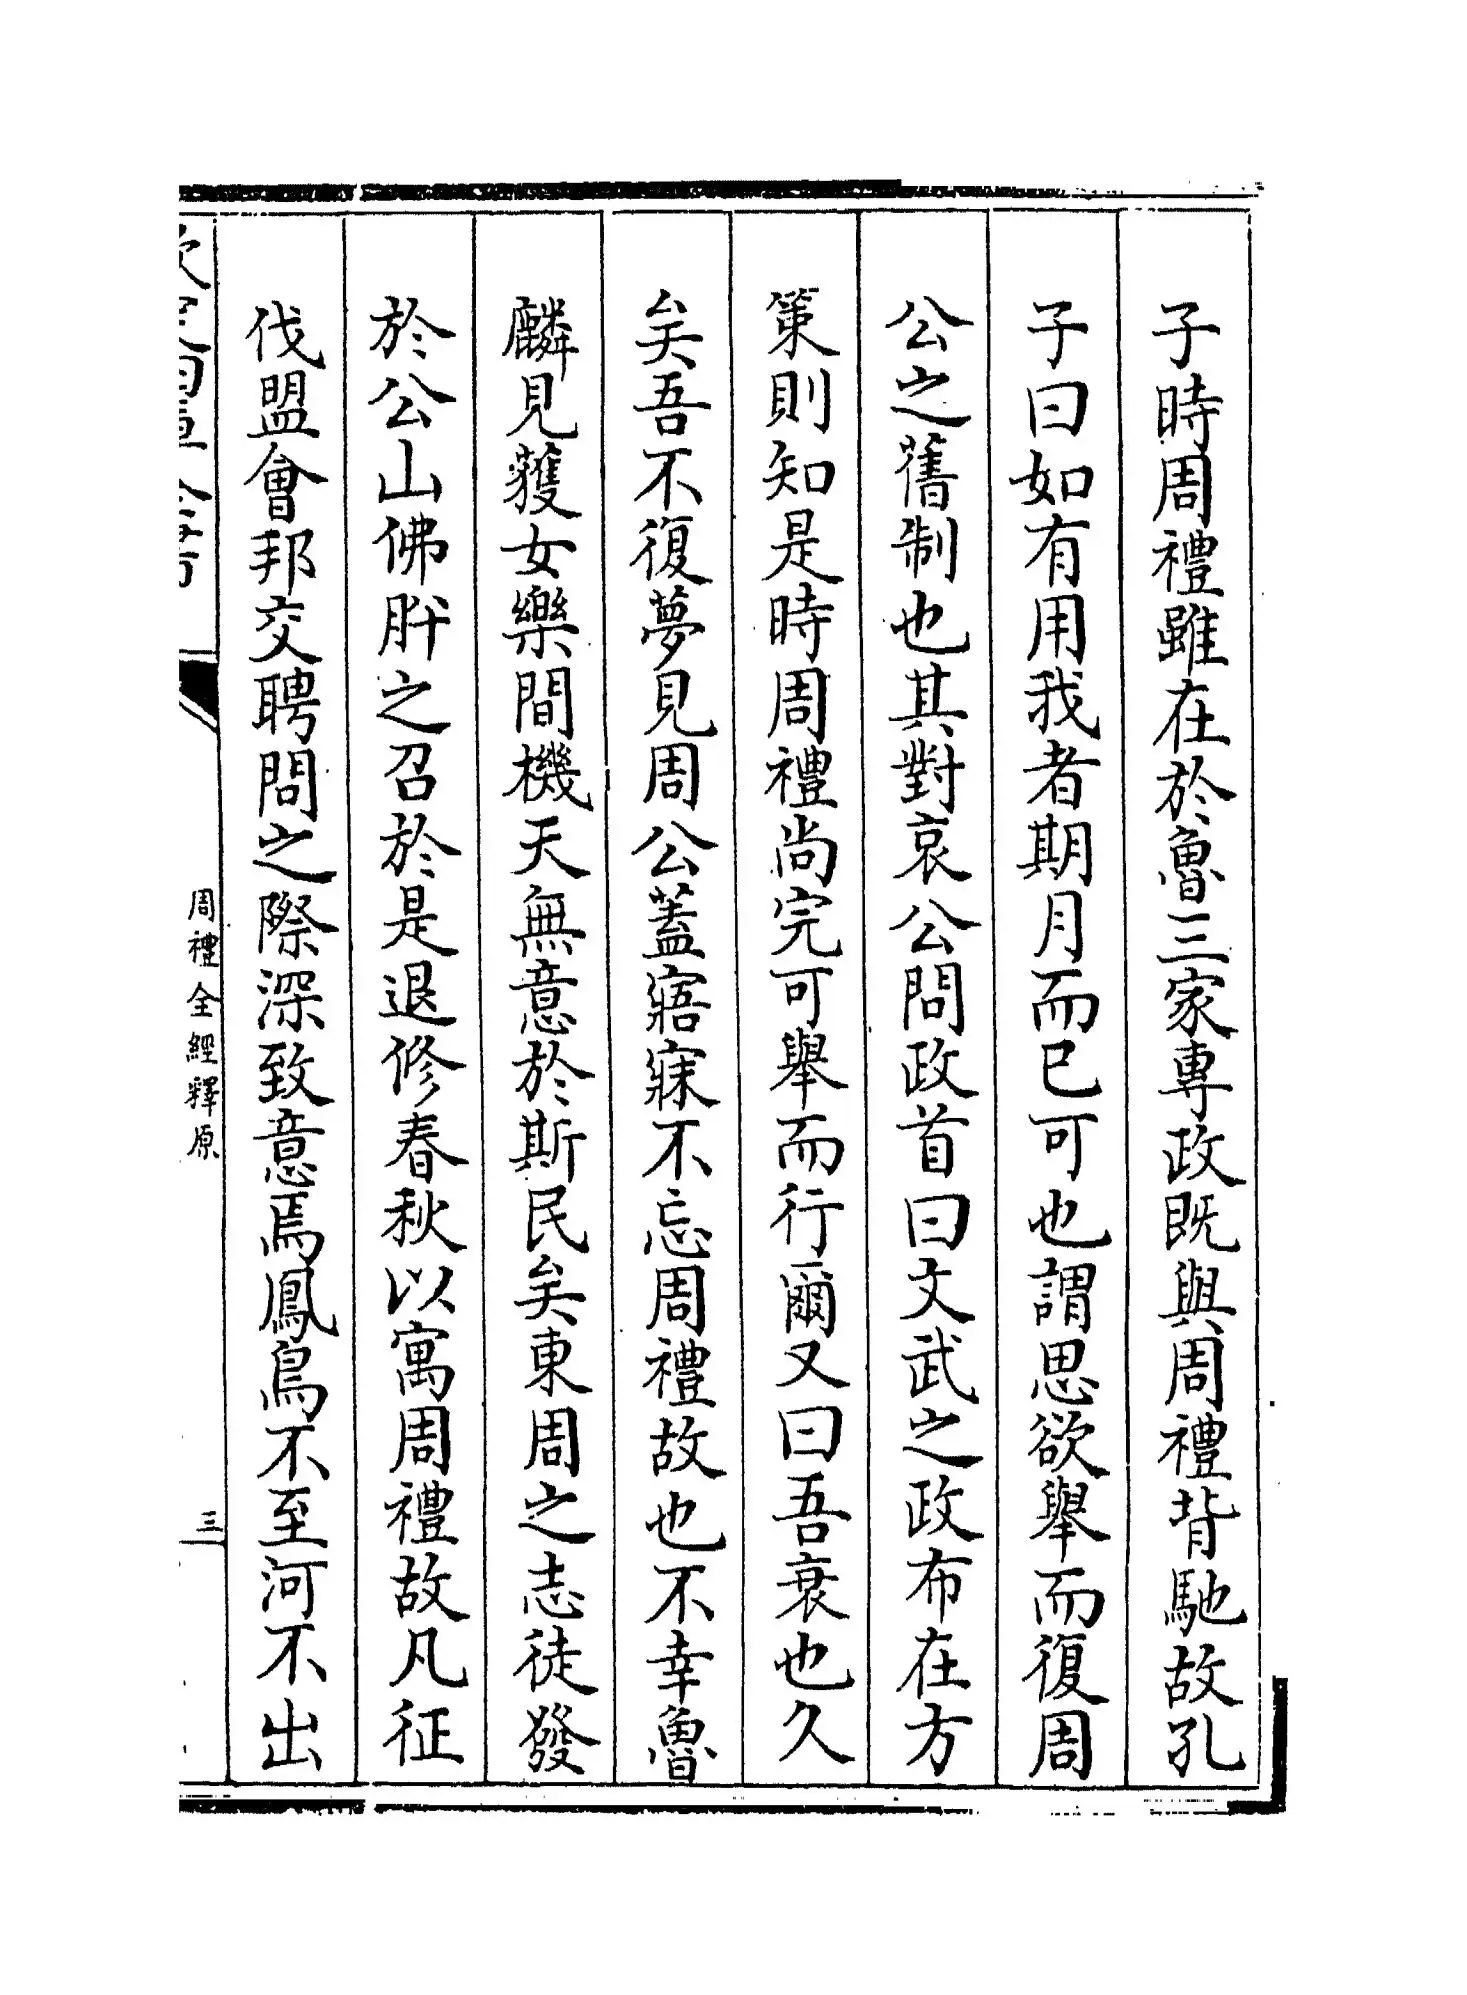 子時周禮雖在於魯三家專政既與周禮背馳故孔
子曰如有用我者期月而已可也謂思欲舉而復周
公之舊制也其對哀公問政首曰文武之政布在方
策則知是時周禮尚完可舉而行爾又曰吾衰也久
矣吾不復夢見周公蓋寤寐不忘周禮故也不幸魯
麟見獲女樂間機天無意於斯民矣東周之志徒發
於公山佛肸之召於是退修春秋以寓周禮故凡征
伐盟會邦交聘問之際深致意焉鳳鳥不至河不出
周禮全經釋原
三